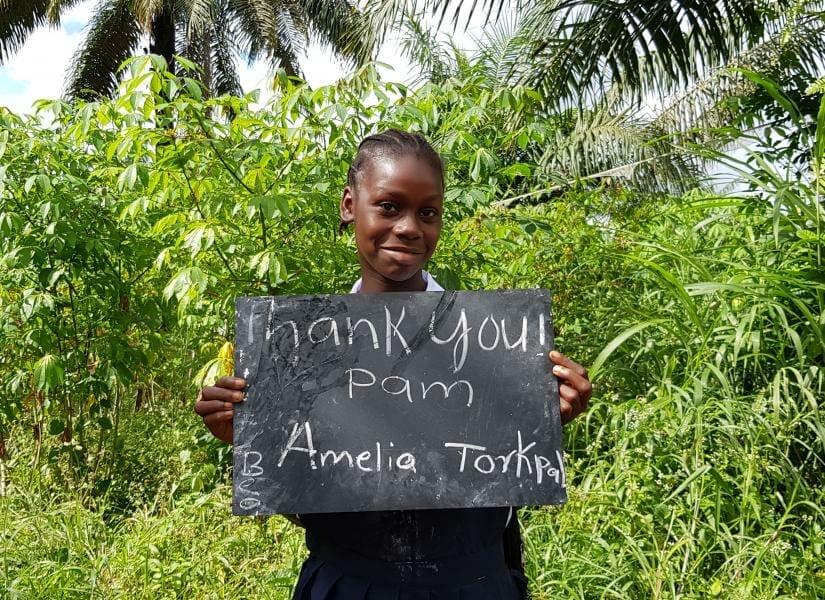 Thank You!
Pam
Amelia Torkpah
B